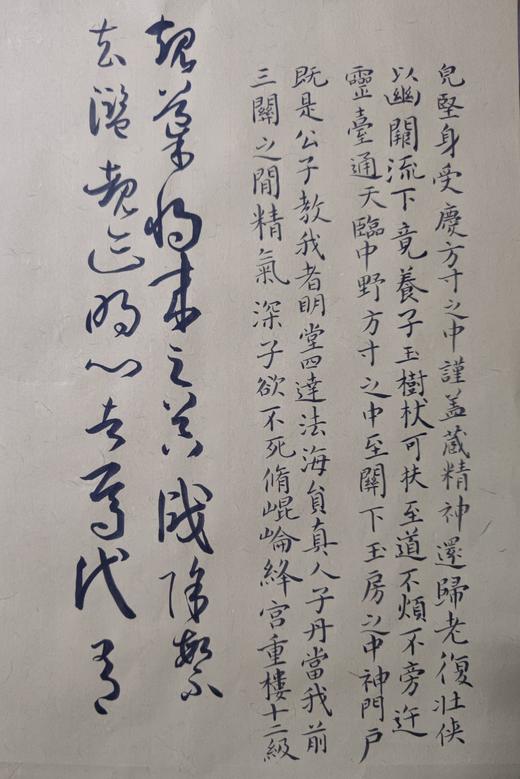 皃堅身受慶方寸之中謹盖蔵精神還歸老復壯俠
以幽闕流下竟養子玉樹杖可扶至道不煩不旁迕
靈臺通天臨中野方寸之中至關下玉房之中神門戶
既是公子教我者明堂四達法海員真人子丹當我前
三關之間精氣深子欲不死脩崐崘絳宫重樓十二級
規導将来之器識除繁
去濫覩迹明心者焉代有